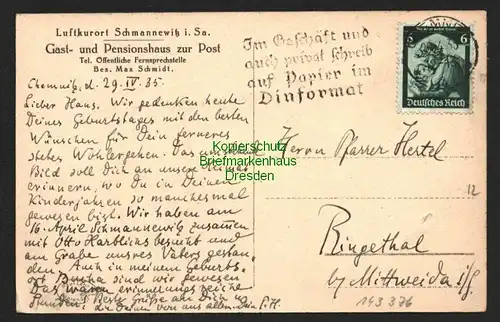 Luftkurort Schmannewitz i. Sa.
Gast- und Pensionshaus zur Post
Tel. Öffentliche Fernsprechstelle
Bes. Max Schmidt.
Chemnitz, d. 29. IV. 35.
Lieber Hans. Wir gedenken heute
Deines Geburtstages mit den besten
Wünschen für Dein ferneres
stetes Wohlergehen. Das
Bild soll Dich an unsre Heimat
erinnern, wo Du in Deinen
Kinderjahren so manchesmal
gewesen bist. Wir haben am
16. April Schmannewitz zusammen
mit Otto Hartlichs besucht und
am Grabe unsres Vaters gestan-
den. Auch in meinem Geburts-
ort sind wir gewesen
Das waren erinnerungsreiche
Stunden. Beste Grüße an Dich u.
die Deinen von uns allen. Dein
Im Geschäft und
auch privat schreib
auf Papier im
Dinformat
6
6
Deutsches Reich
Herrn Pfarrer Hertel
12
Ringethal
by Mittweida i/S.
143 376
Kopierschutz
Briefmarkenhaus
Dresden